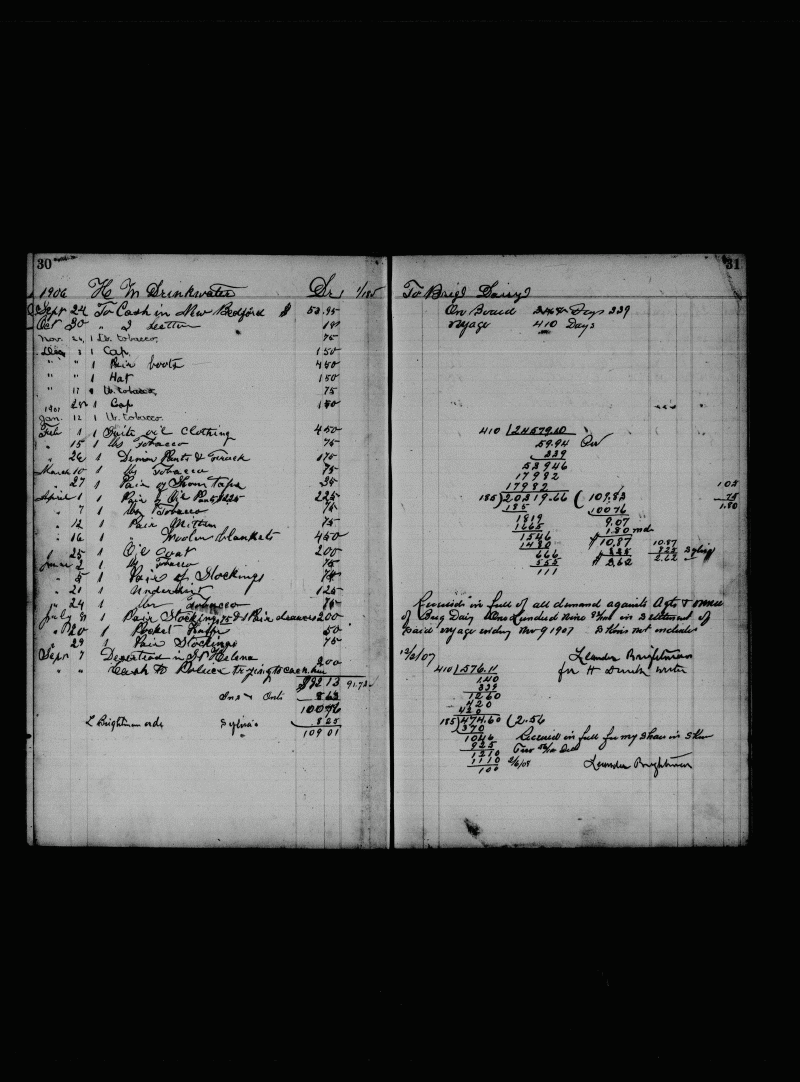 30
1906 H M Drinkwater Dr 1/185
Sept 24 To Cash in New Bedford $ 53.95
Oct 30 " 2
Nov. 24 1 Lb. tobacco 75
Dec 3 1 Cap 150
" " 1 Pair boots 450
" " 1 Hat 150
" 17 1 Lb. tobacco 75
1 Cap 150
1907
Jan. 12 1 Lb. tobacco
Feb 1 1 Suite oil clothing 450
" 15 1 Lb Tobacco 75
" 26 1 Denim Pants & Frock 175
March 10 1 Lb Tobacco 75
" 27 1 Pair of Shoe Taps 35
April 1 1 Pair of Oil Pants 225 225
" 7 1 Lb Tobacco 75
" 12 1 Pair Mitten 75
" 16 1 Woolen blankets 450
" 25 1 Oil Coat 200
June 2 1 Lb Tobacco 75
" 5 1 Pair of Stockings 75
" 21 1 Undershirt 125
" 24 1 Lbr tobacco 75
July 8 1 Pair Stockings 75 & 1 Pair drawers 200
" 20 1 Pocket Knife 50
" 29 1 Pair Stockings 75
Sept 7 Deserted in St Helena
" " Cash to Police trying to catch him 200
$92 13 91.73
Ins & Outs 8 63
100 76
L Brightman order Sylvia's 8.25
109 01
31
To Brig Daisy
On Board Days 339
voyage 410 Days
410 24579.60
59.94
339
53946
17982
17982
185) 20319.66 ( 109.83
185 100 76
1819 9.07
1665 1.80
1546 $ 10.87
1480 $ 8.25
666 $ 2.62
555
111
105
75
1.80
10.87
8.25
2.62
Received in full of all demand against Agt & owners
of Brig Daisy One Hundred Nine 83/100 in Settlement of
said voyage ending Nov 9 1907
Leander Brightman
for H Drinkwater
410 576.11
140
339
1260
420
420
185) 474.60 ( 2.56
370
1046
925
1210
1110
100
Received in full for my share in
Two 56/100 Dol
Leander Brightman